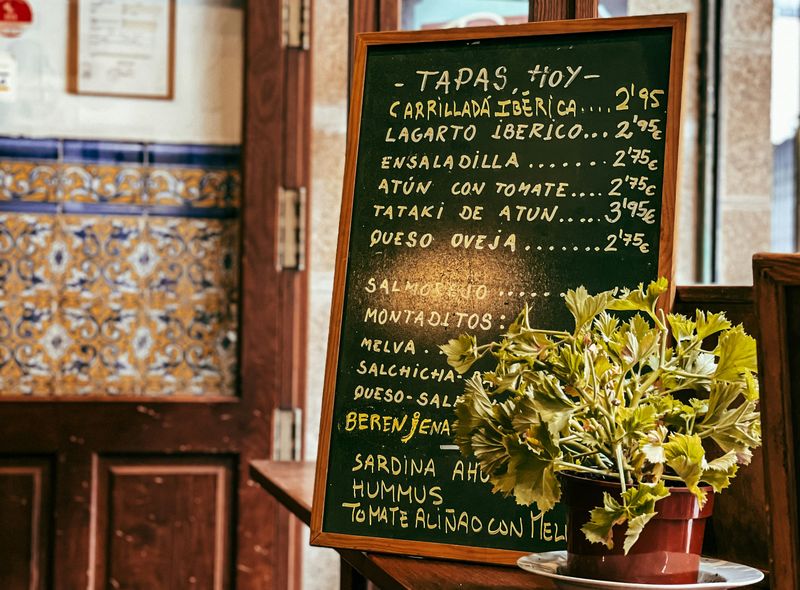 - TAPAS, HOY -
CARRILLADA IBÉRICA.... 2'95
LAGARTO IBERICO... 2'95€
ENSALADILLA ....... 2'75€
ATÚN CON TOMATE.... 2'75€
TATAKI DE ATUN..... 3'95€
QUESO OVEJA ....... 2'75€
SALMOREJO ......
MONTADITOS:
MELVA .
SALCHICHA-
QUESO-SAL
BERENJENA
SARDINA AHU
HUMMUS
TOMATE ALIÑAO CON MEL